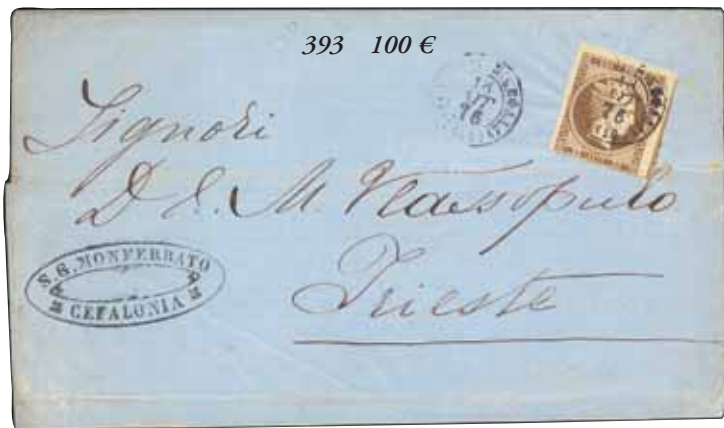 393 100 €
Signori
D. E. M. Vlassopulo
Trieste
S. G. MONFERRATO
CEFALONIA
76